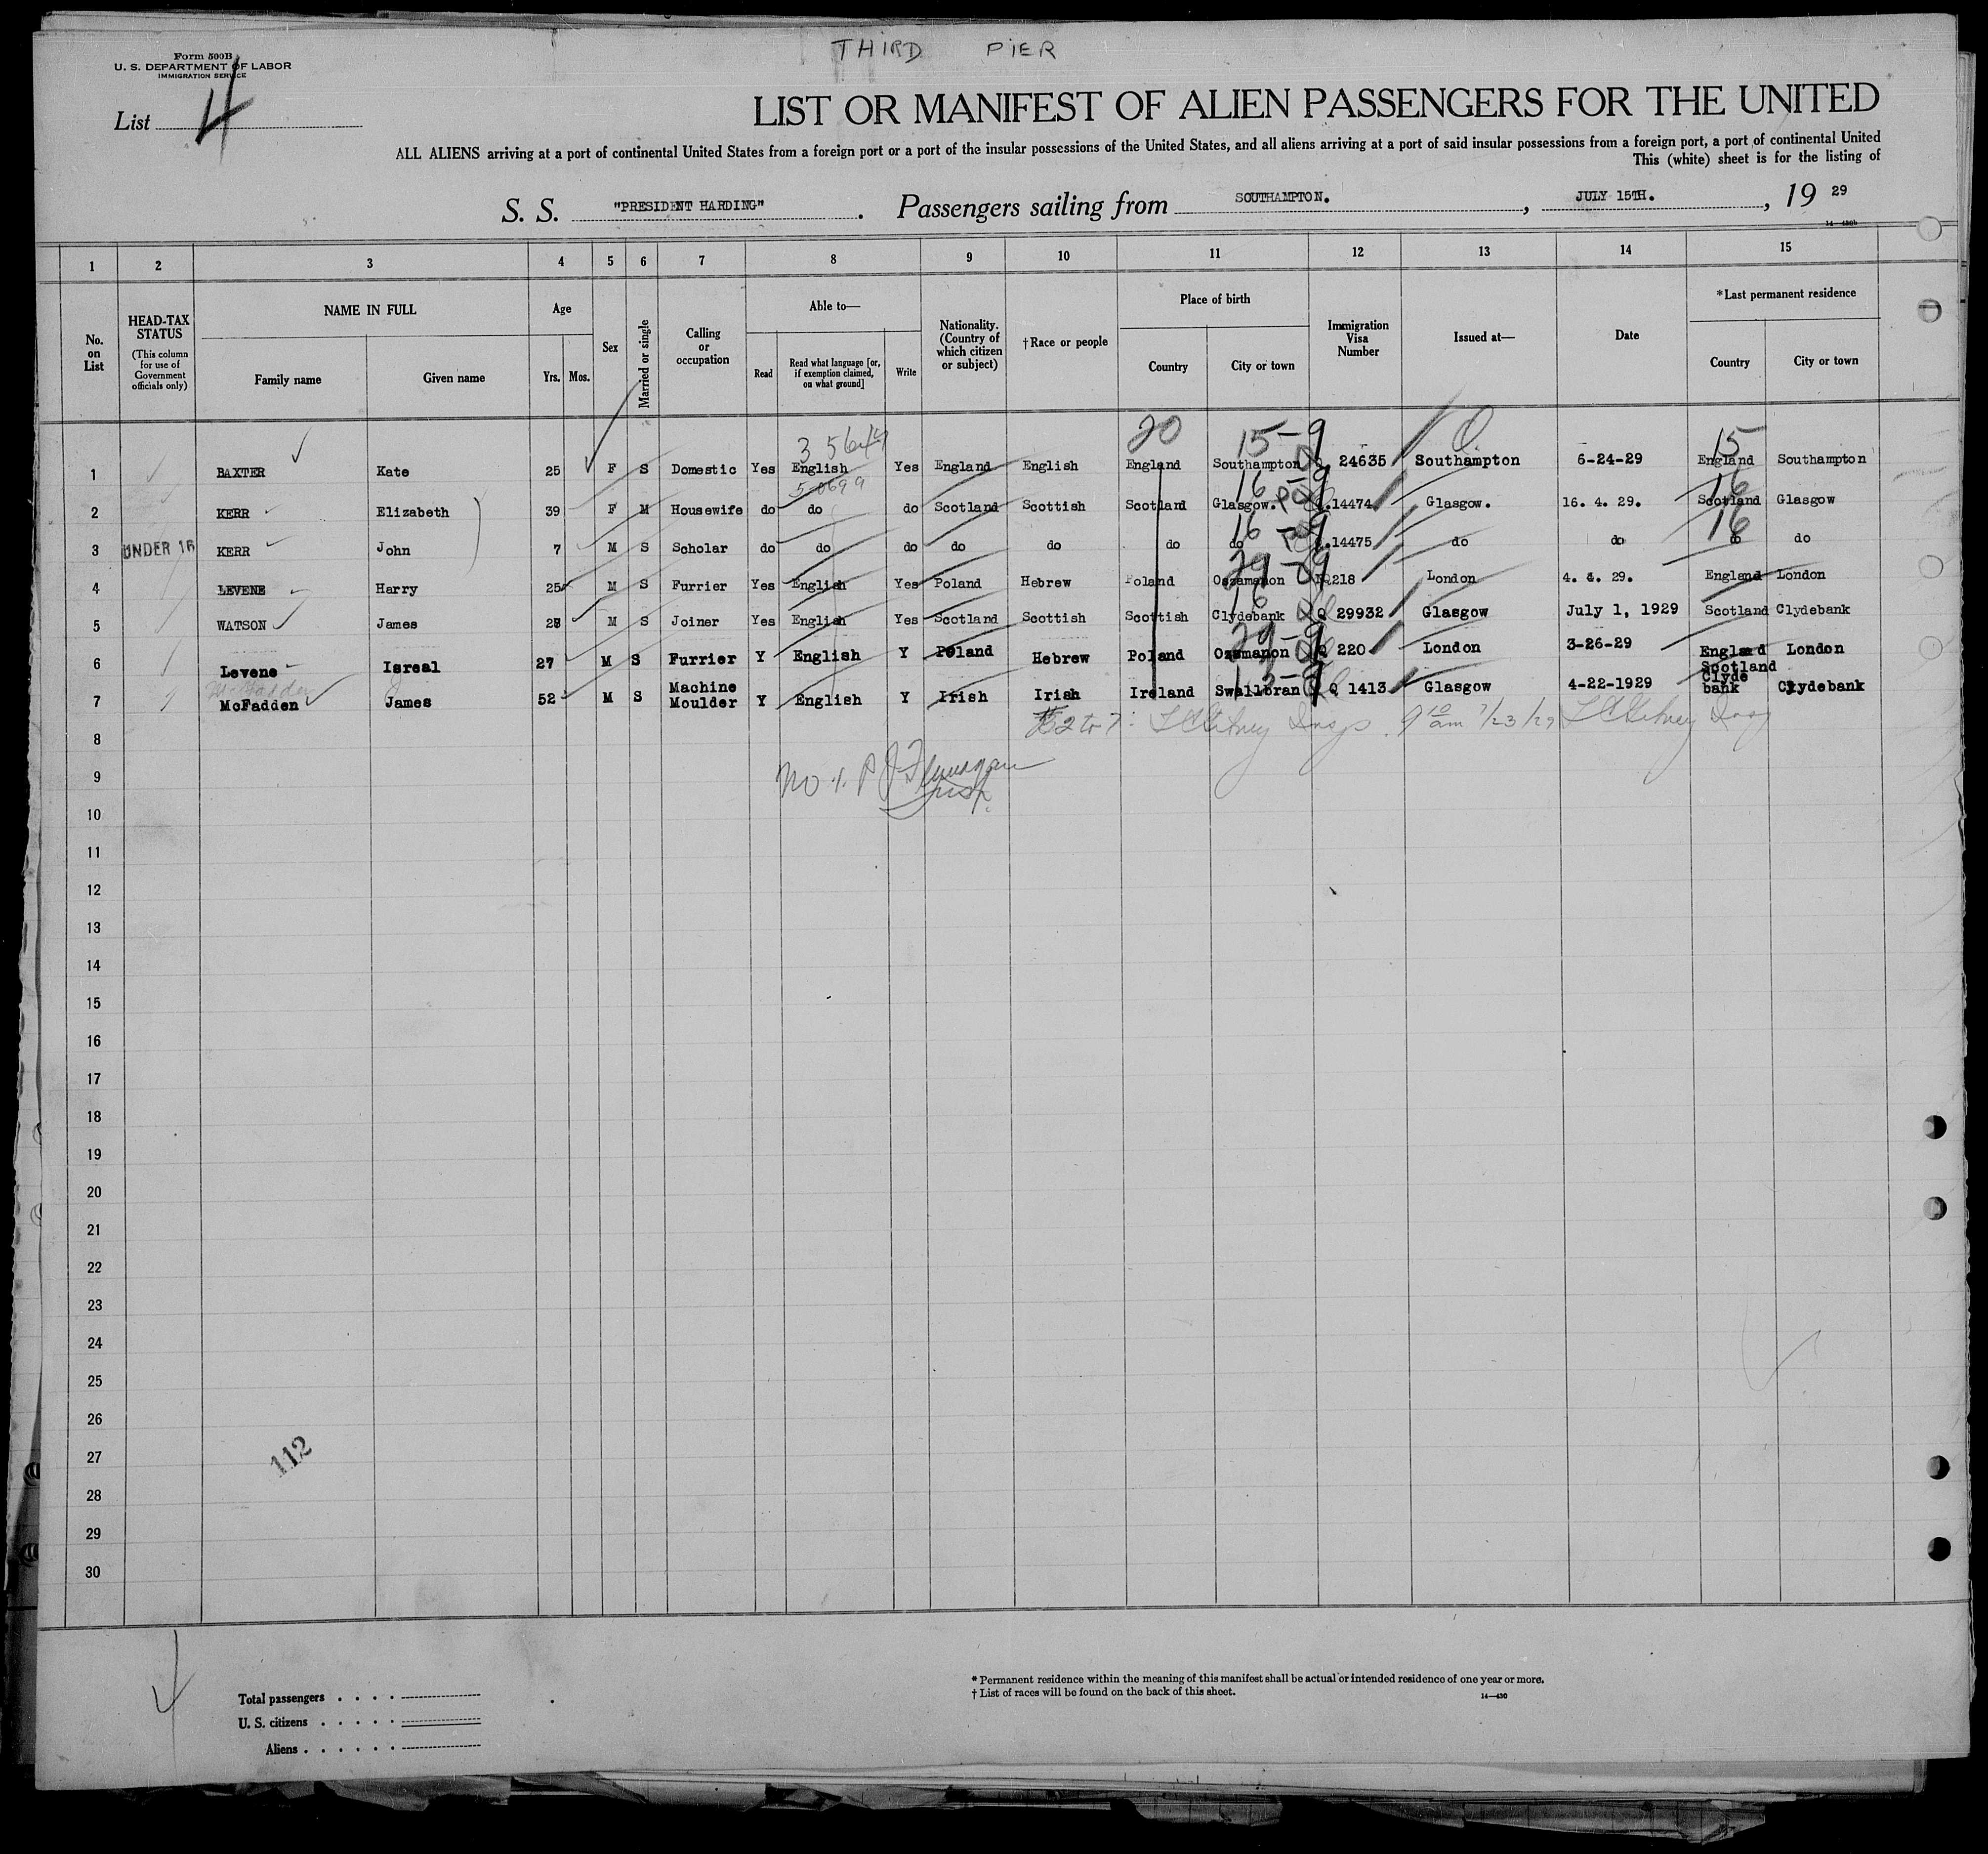 THIRD PIER
Form 500B
U. S. DEPARTMENT OF LABOR
IMMIGRATION SERVICE
List 4
LIST OR MANIFEST OF ALIEN PASSENGERS FOR THE UNITED
ALL ALIENS arriving at a port of continental United States from a foreign port or a port of the insular possessions of the United States, and all aliens arriving at a port of said insular possessions from a foreign port, a port of continental United
This (white) sheet is for the listing of
S. S. "PRESIDENT HARDING". Passengers sailing from SOUTHAMPTON. , JULY 15TH. , 19 29
14—430b
1 2 3 4 5 6 7 8 9 10 11 12 13 14 15
No. on List
HEAD-TAX STATUS
(This column for use of Government officials only)
NAME IN FULL
Family name Given name
Age
Yrs. Mos.
Sex
Married or single
Calling or occupation
Able to—
Read Read what language [or, if exemption claimed, on what ground] Write
Nationality. (Country of which citizen or subject)
†Race or people
Place of birth
Country City or town
Immigration Visa Number
Issued at—
Date
*Last permanent residence
Country City or town
20 15-9 15
1 BAXTER Kate 25 F S Domestic Yes English Yes England English England Southampton 24635 Southampton 6-24-29 England Southampton
16 16
2 KERR Elizabeth 39 F M Housewife do do do Scotland Scottish Scotland Glasgow. 14474 Glasgow. 16. 4. 29. Scotland Glasgow
16 16
3 UNDER 16 KERR John 7 M S Scholar do do do do do do do 14475 do do do do
29-9
4 LEVENE Harry 25 M S Furrier Yes English Yes Poland Hebrew Poland Oszmanon 218 London 4. 4. 29. England London
16
5 WATSON James 28 M S Joiner Yes English Yes Scotland Scottish Scottish Clydebank Q 29932 Glasgow July 1, 1929 Scotland Clydebank
29-9
6 Levene Isreal 27 M S Furrier Y English Y Poland Hebrew Poland Oszmanon Q 220 London 3-26-29 England London
McFadden
7 McFadden James 52 M S Machine Moulder Y English Y Irish Irish Ireland Swallbran Q 1413 Glasgow 4-22-1929 Scotland Clyde bank Clydebank
2 to 7: Insp. 9 10 am 7/23/29
8
No 1. P J Flanagan
Insp.
9
10
11
12
13
14
15
16
17
18
19
20
21
22
23
24
25
26
27
28
29
30
112
Total passengers . . . .
U. S. citizens . . . . .
Aliens . . . . . .
* Permanent residence within the meaning of this manifest shall be actual or intended residence of one year or more.
† List of races will be found on the back of this sheet.
14—430